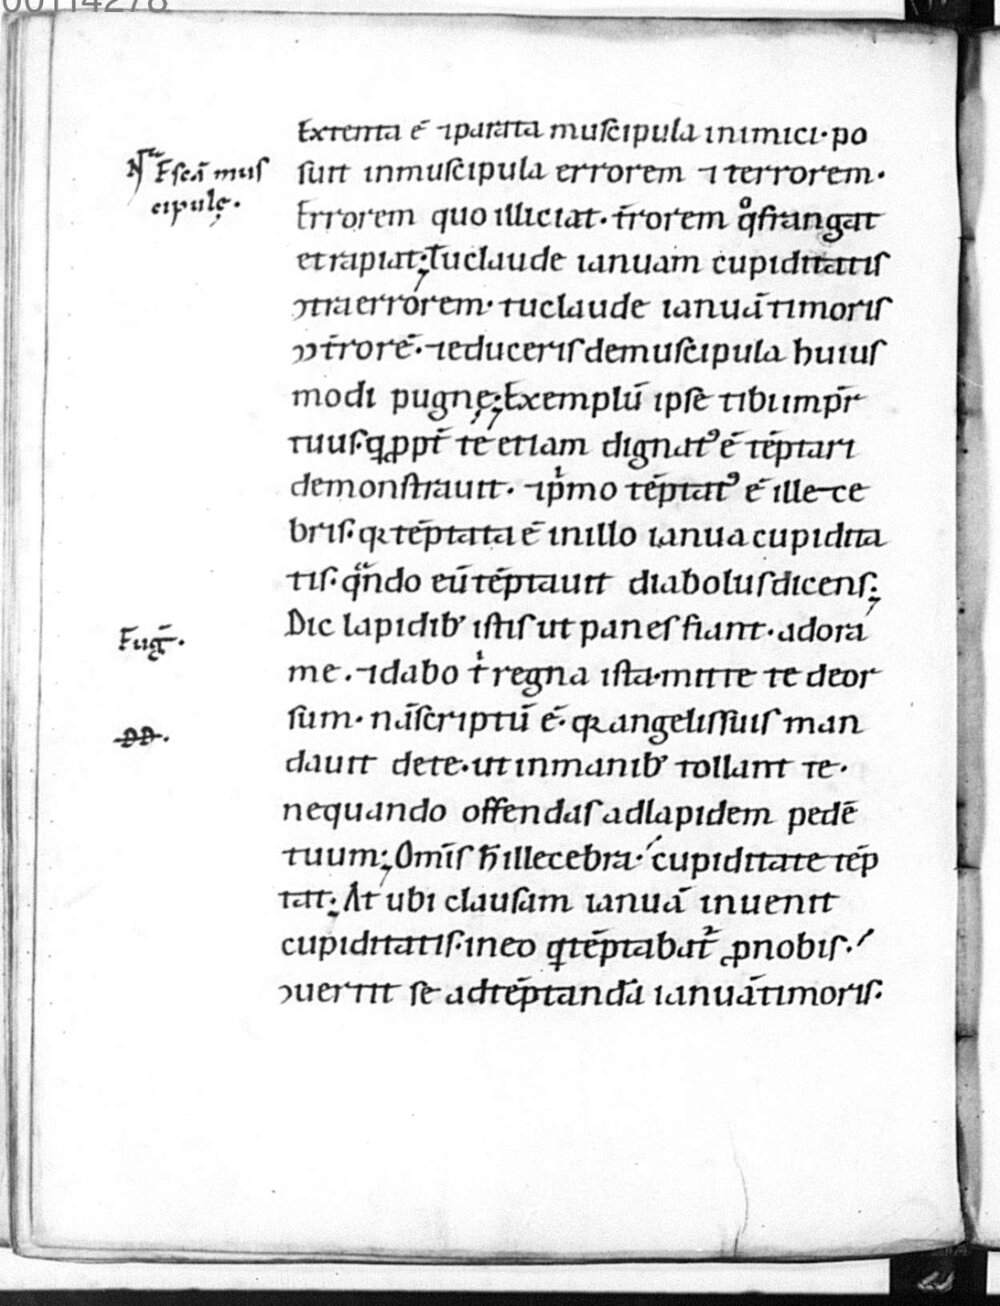 00114278
Extenta ē ⁊ parata muscipula inimici· po
suit inmuscipula errorem ⁊ terrorem·
Errorem quo illiciat· t̄rorem q̊ frangat
et rapiat; Tu claude ianuam cupiditatis
ↄtra errorem· tu claude ianuā timoris
ↄ t̄rorē· ⁊ educeris demuscipula huius
modi pugnę; Exemplū ipse tibi imp̄r
tuus· q ꝓpt̄ te etiam dignatꝰ ē tēptari
demonstrauit· ⁊ pͥmo tēptatꝰ ē illece
bris· qꝛ tēptata ē inillo ianua cupidita
tis· qͣ̄ndo eū tēptauit diabolus dicens;
Dic lapidibꝰ istis ut panes fiant· adora
me· ⁊ dabo tͥ regna ista· mitte te deor
sum· nā scriptū ē· qꝛ angelis suis man
dauit dete· ut inmanibꝰ tollant te·
nequando offendas adlapidem pedē
tuum; Om̄is ħ illecebra· cupiditate tēp
tat; At ubi clausam ianuā inuenit
cupiditatis· ineo q tēptabat᷑ ꝓ nobis·
ↄuertit se adtēptandā ianuā timoris·
Escā mus
cipulę·
Fuḡ·